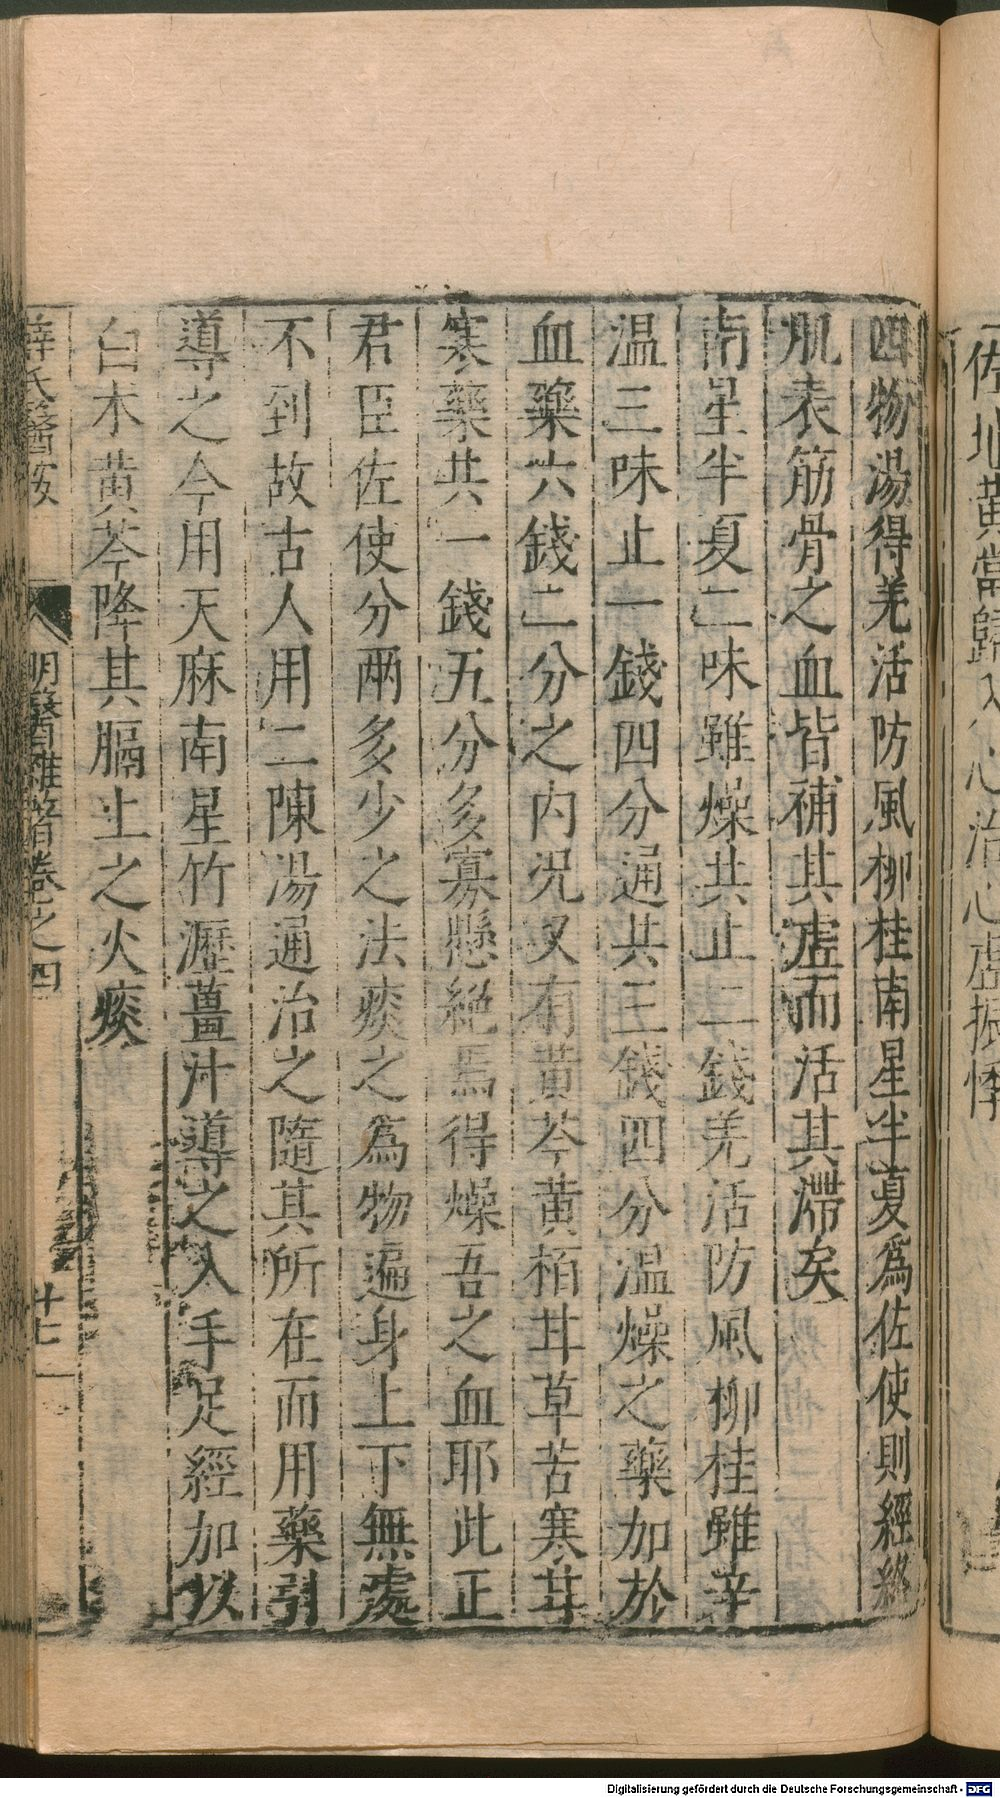 佐地黃當歸入心治心虛振悸
四物湯得羌活防風柳桂南星半夏爲佐使則經絡
肌表筋骨之血皆補其虛而活其滯矣
南星半夏二味雖燥共止二錢羌活防風柳桂雖辛
温三味止一錢四分通共三錢四分温燥之藥加於
血藥六錢二分之內況又有黃芩黃栢甘草苦寒甘
寒藥共一錢五分多寡懸絕焉得燥吾之血耶此正
君臣佐使分兩多少之法痰之爲物遍身上下無處
不到故古人用二陳湯通治之隨其所在而用藥引
導之今用天麻南星竹瀝薑汁導之入手足經加以
白术黃芩降其膈上之火痰
薛氏醫按 明醫雜著卷之四 廿七
Digitalisierung gefördert durch die Deutsche Forschungsgemeinschaft - DFG